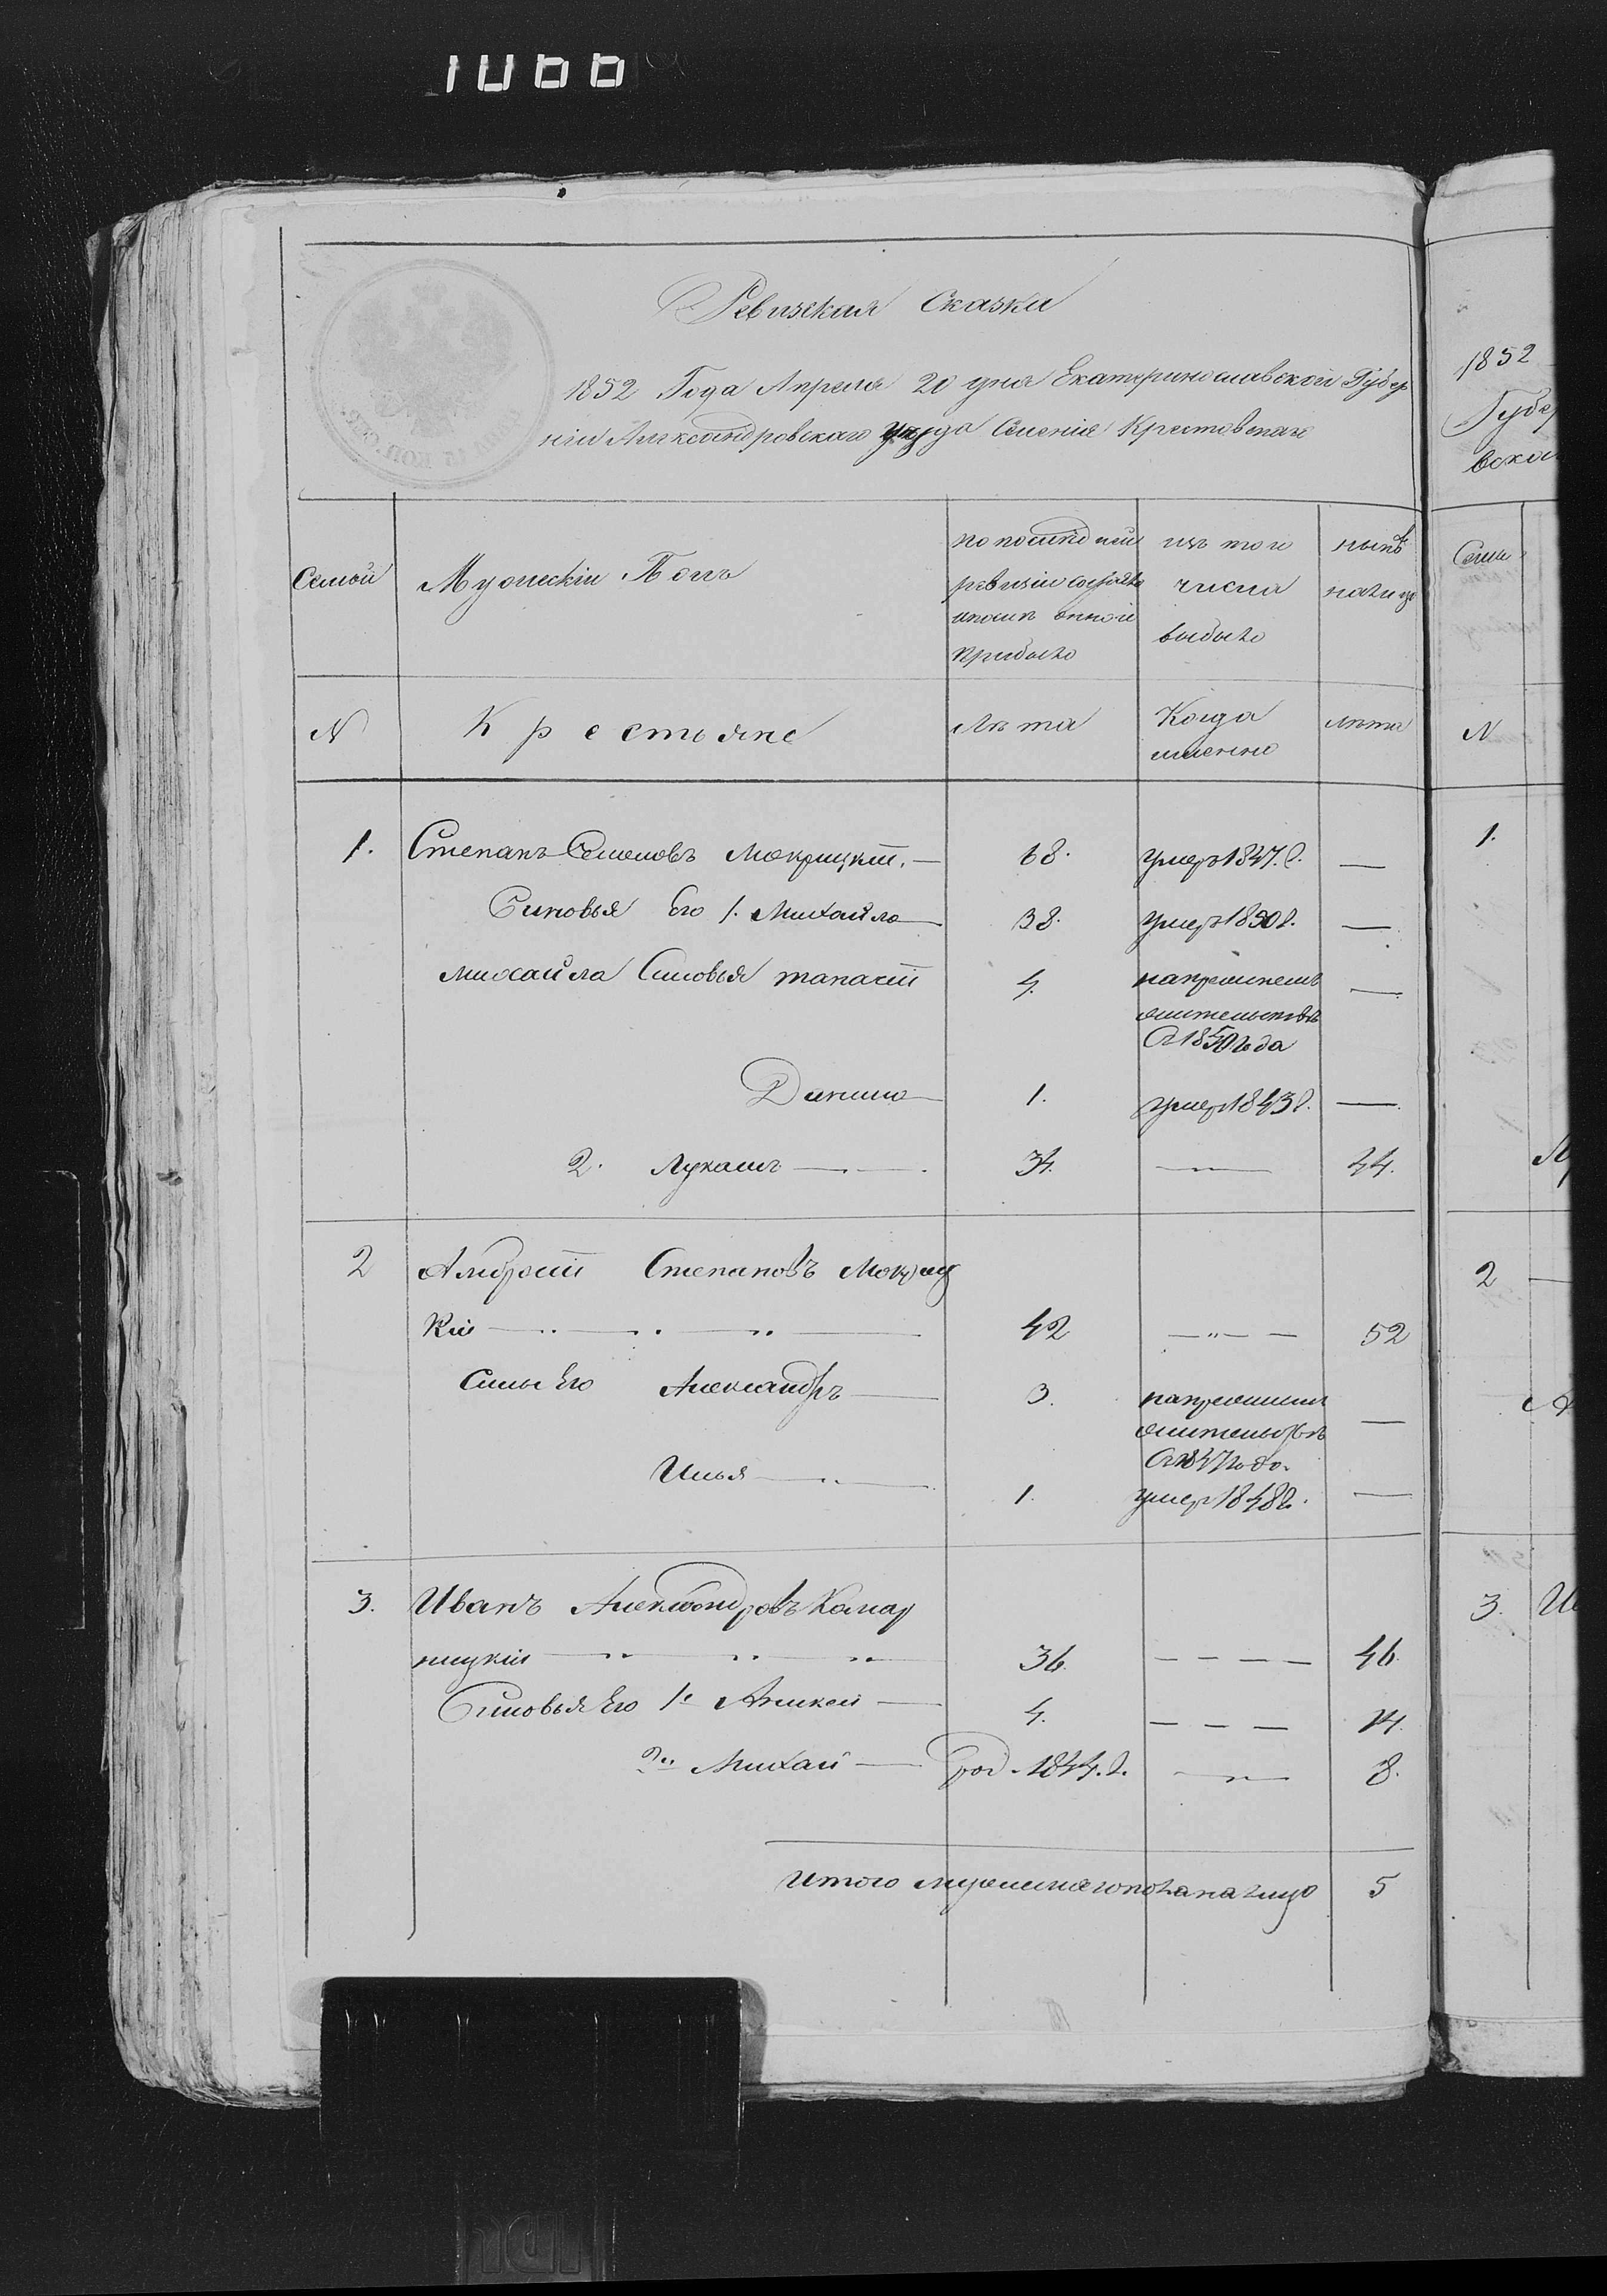 1066
Ревизская Сказка
1852 Года Апреля 20 дня Екатеринославской Губер
ніи Александровскаго уезда Селенія
Семьи
Мужескій Полъ
по последней
ревизіи состояло
и после оной
прибыло
изъ того
числа
выбыло
ныне
на лицо
N
Крестьяне
Лета
Когда
именно
лета
1. Степанъ Семеновъ Мокрицкій. — 68. умеръ 1847. г. —
Сыновья Его 1. Михайло — 38. умеръ 1850 г. —
Михайла Сыновья 4. —
С 1850 года
Данило — 1. умеръ 1843 г. —
2. Лукашъ — 34. — 44.
2 Амбросій Степановъ Мокриц
кій — 42 — 52
Сины Его Александръ — 3. —
С 1847 года.
Илья — 1. умеръ 1848 г. —
3. Иванъ Александровъ Комар
ницкій — 36. — 46.
Сыновья Его 1й — 4. — 14.
2й Михай — род. 1844. г. — 8.
Итого мужеска пола на лицо 5
1852
Губер
вской
Семьи
N
1.
2
3. И